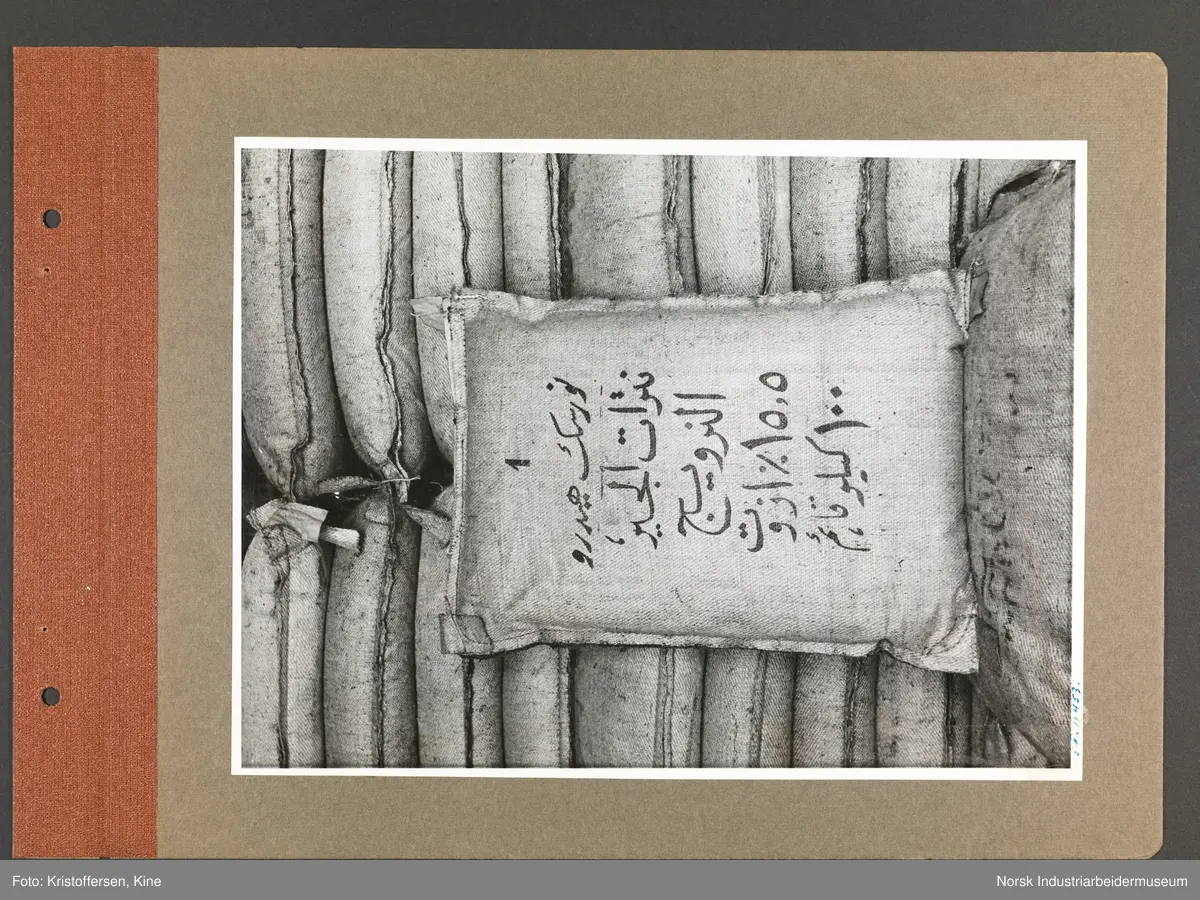 1
نورسك هيدرو
نترات الجير
النرويج
١٥,٥٪ ازوت
١٠٠ كيلو قائم
Foto: Kristoffersen, Kine
Norsk Industriarbeidermuseum